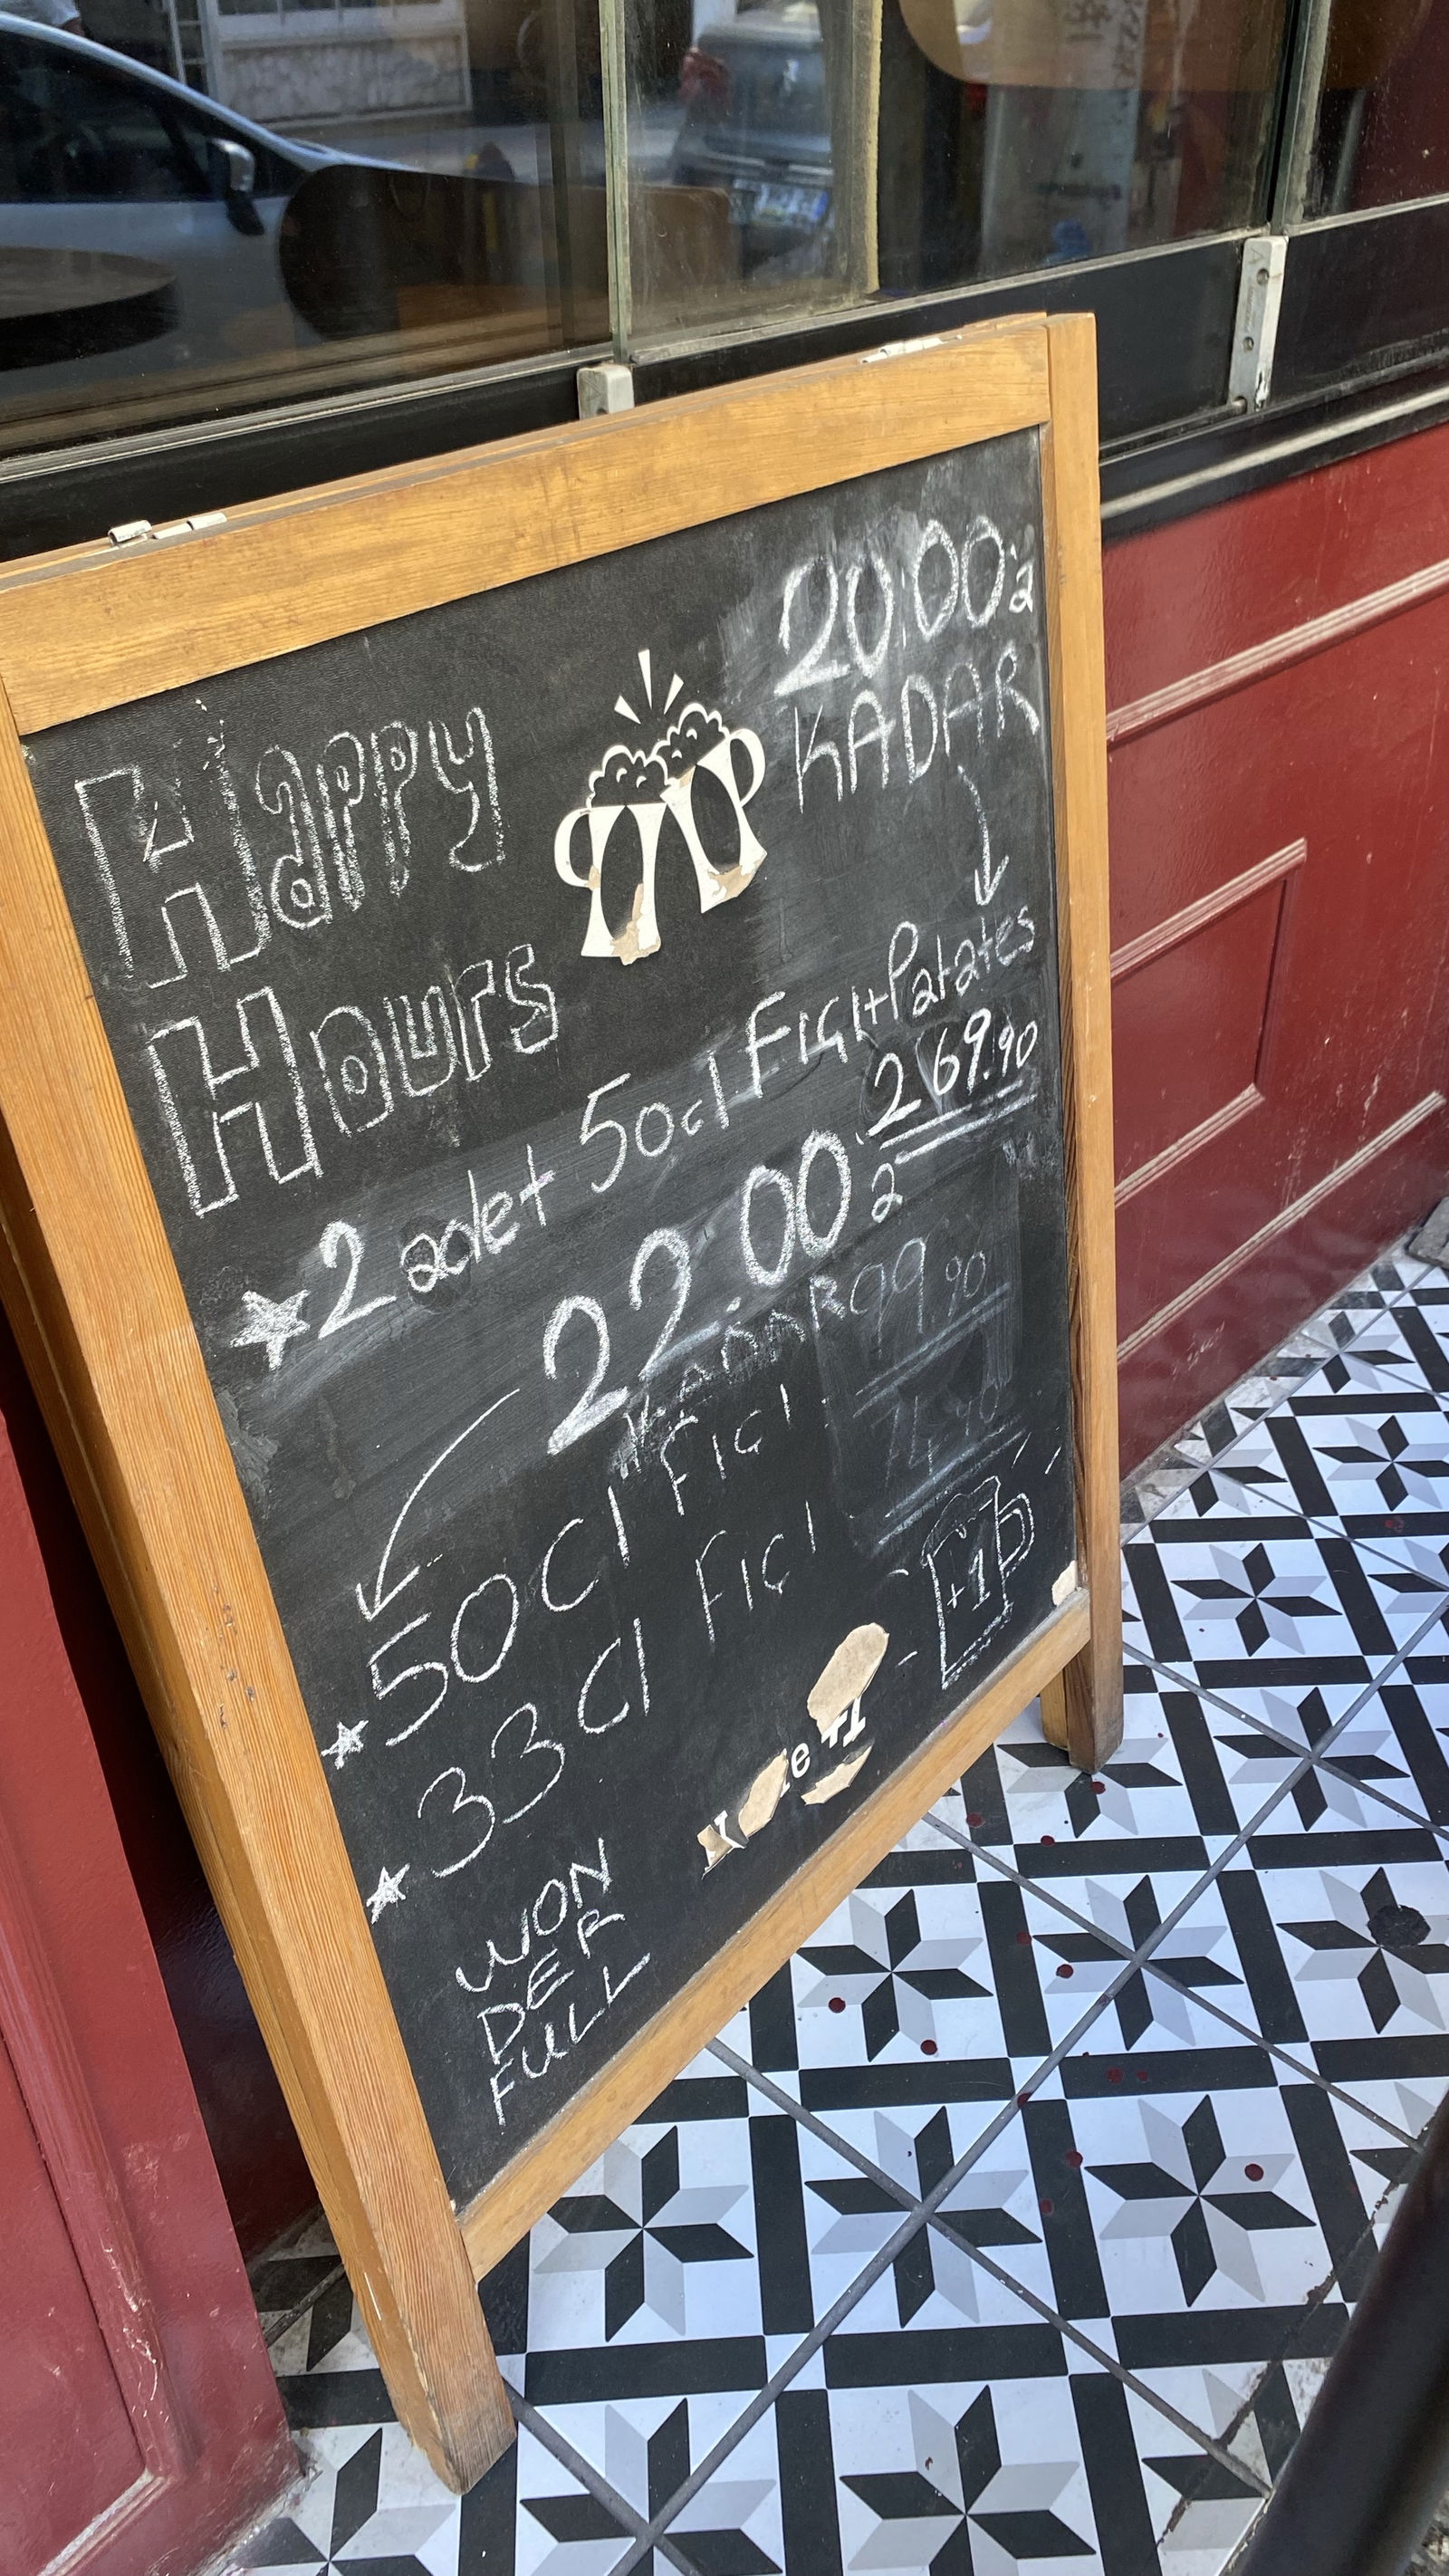 Happy
Hours
20:00'a
KADAR
2 adet 50cl FIÇI+Patates
269.90
22:00'a
KADAR
99.90
50Cl FIÇI
74.90
33Cl FIÇI
+1
WON
DER
FULL